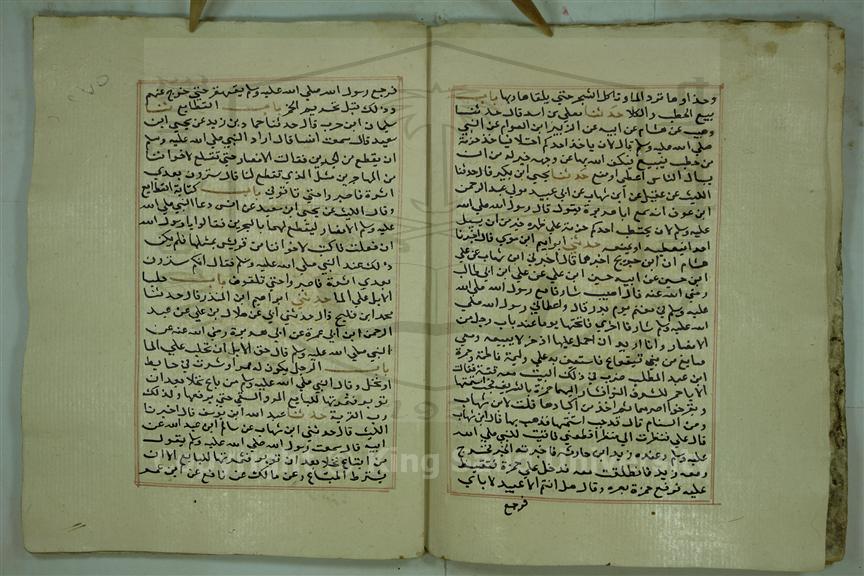 وحذاوها ترد الماء وتاكل الشجر حتى يلقاها ربها باب
بيع الحطب والكلا حدثنا معلى بن اسد قال حدثنا
وهيب عن هشام عن ابيه عن الزبير ابن العوام عن النبي
صلى الله عليه وسلم قال لان ياخذ احدكم احبلا فياخذ حزمة
من حطب فيبيع فيكف الله بها عن وجهه خير له من ان
يسال الناس اعطي او منع حدثنا يحيى ابن بكير قال حدثنا
الليث عن عقيل عن ابن شهاب عن ابي عبيد مولى عبد الرحمن
ابن عوف انه سمع ابا هريرة يقول قال رسول الله صلى الله
عليه وسلم لان يحتطب احدكم حزمة على ظهره خير من ان يسال
احدا فيعطيه او يمنعه حدثني ابراهيم ابن موسى قال اخبرنا
هشام ان ابن جريج اخبرهم قال اخبرني ابن شهاب عن علي
ابن حسين عن ابيه حسين ابن علي عن علي ابن ابي طالب
رضي الله عنه قال اصبت شارفا مع رسول الله صلى الله
عليه وسلم في مغنم يوم بدر قال واعطاني رسول الله صلى
الله عليه وسلم شارفا اخرى فانختهما يوما عند باب رجل من
الانصار وانا اريد ان احمل عليهما اذخرا لابيعه ومعي
صايغ من بني قينقاع فاستعين به على وليمة فاطمة وحمزة
ابن عبد المطلب يشرب في ذلك البيت معه قينة فقالت
الا يا حمز للشرف النواء فثار اليهما حمزة بالسيف فجب اسنمتهما
وبقر خواصرهما ثم اخذ من اكبادهما قلت لابن شهاب
ومن السنام قال قد جب اسنمتهما فذهب بها قال ابن شهاب
قال علي فنظرت الى منظر افظعني فاتيت نبي الله صلى الله
عليه وسلم وعنده زيد ابن حارثة فاخبرته الخبر فخرج
ومعه زيد فانطلقت معه فدخل على حمزة فتغيظ
عليه فرفع حمزة بصره وقال هل انتم الا عبيد لاباي
فرجع
فرجع رسول الله صلى الله عليه وسلم يقهقر حتى خرج عنهم
وذلك قبل تحريم الخمر باب القطايع حدثنا
سليمان ابن حرب قال حدثنا حماد بن زيد عن يحيى ابن
سعيد قال سمعت انسا قال اراد النبي صلى الله عليه وسلم
ان يقطع من البحرين فقالت الانصار حتى تقطع لاخواننا
من المهاجرين مثل الذي تقطع لنا قال سترون بعدي
اثرة فاصبروا حتى تلقوني باب كتابة القطايع
وقال الليث عن يحيى ابن سعيد عن انس دعا النبي صلى الله
عليه وسلم الانصار ليقطع لهم بالبحرين فقالوا يا رسول الله
ان فعلت فاكتب لاخواننا من قريش بمثلها فلم يكن
ذلك عند النبي صلى الله عليه وسلم فقال انكم سترون
بعدي اثرة فاصبروا حتى تلقوني باب حلب
الابل على الماء حدثني ابراهيم ابن المنذر قال حدثنا
محمد ابن فليح قال حدثني ابي عن هلال بن علي عن عبد
الرحمن ابن ابي عمرة عن ابي هريرة رضي الله عنه عن
النبي صلى الله عليه وسلم قال حق الابل ان تحلب على الماء
باب الرجل يكون له ممر او شرب في حايط
او نخل وقال النبي صلى الله عليه وسلم من باع نخلا بعد ان
توبر فثمرتها للبايع وله الممر والسقي حتى يرفعها وكذلك
رب العرية حدثنا عبد الله ابن يوسف قال اخبرنا
الليث قال حدثني ابن شهاب عن سالم ابن عبد الله عن
ابيه قال سمعت رسول الله صلى الله عليه وسلم يقول
من ابتاع نخلا بعد ان توبر فثمرتها للبايع الا ان
يشترط المبتاع وعن مالك عن نافع عن ابن عمر